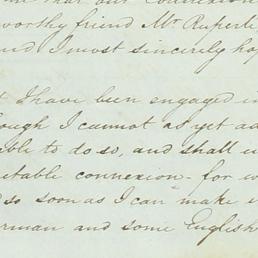 that our connexion
worthy friend Mr Ruperle
and I most sincerely hop
I have been engaged in
though I cannot as yet
able to do so, and shall
uitable connexion- for
so soon as I can make
erman and some English